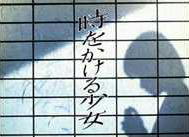 時をかける少女